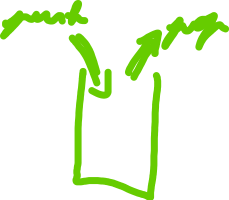 push
pop